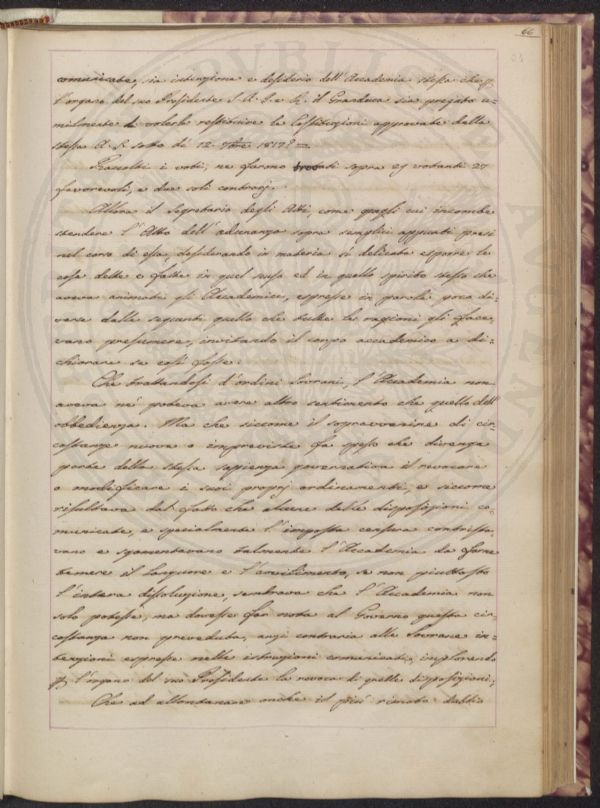 66
comunicate, sia intenzione e desiderio dell'Accademia stessa che p
l'organo del suo Presidente S. A. I. e R. il Granduca sia pregato u=
milmente di volerle restituire le Costituzioni approvate dalla
stessa A. S. sotto dì 12 1817
Raccolti i voti, ne furono trovati sopra 29 votanti 27
favorevoli, e due soli contrarj.
Allora il Segretario degli Atti, come quegli cui incombe
stendere l'Atto dell'adunanza sopra semplici appunti presi
nel corso di essa, desiderando in materia sì delicata esporre le
cose dette e fatte in quel senso ed in quello spirito stesso che
aveva animati gli Accademici, espresse in parole poco di=
verse dalle seguenti quello che tutte le ragioni gli face=
vano presumere, invitando il corpo accademico a di=
chiarare se così fosse.
Che trattandosi d'ordini Sovrani, l'Accademia non
aveva nè poteva avere altro sentimento che quello dell'
obbedienza. Ma che siccome il sopravvenire di cir=
costanze nuove o imprevviste fa spesso che divenga
parte della stessa sapienza governativa il revocare
o modificare i suoi proprj ordinamenti, e siccome
risultava dal fatto che alcune delle disposizioni co=
municate, e specialmente l'imposta censura contrista=
vano e sgomentavano talmente l'Accademia da farne
temere il languore e l'avvilimento, se non piuttosto
l'intera dissoluzione, sembrava che l'Accademia non
solo potesse, ma dovesse far nota al Governo questa cir=
costanza non preveduta, anzi contraria alle Sovrane in=
tenzioni espresse nelle istruzioni comunicate, implorando
p l'organo del suo Presidente la revoca di quelle disposizioni.
Che ad allontanare anche il più rimoto dubbio